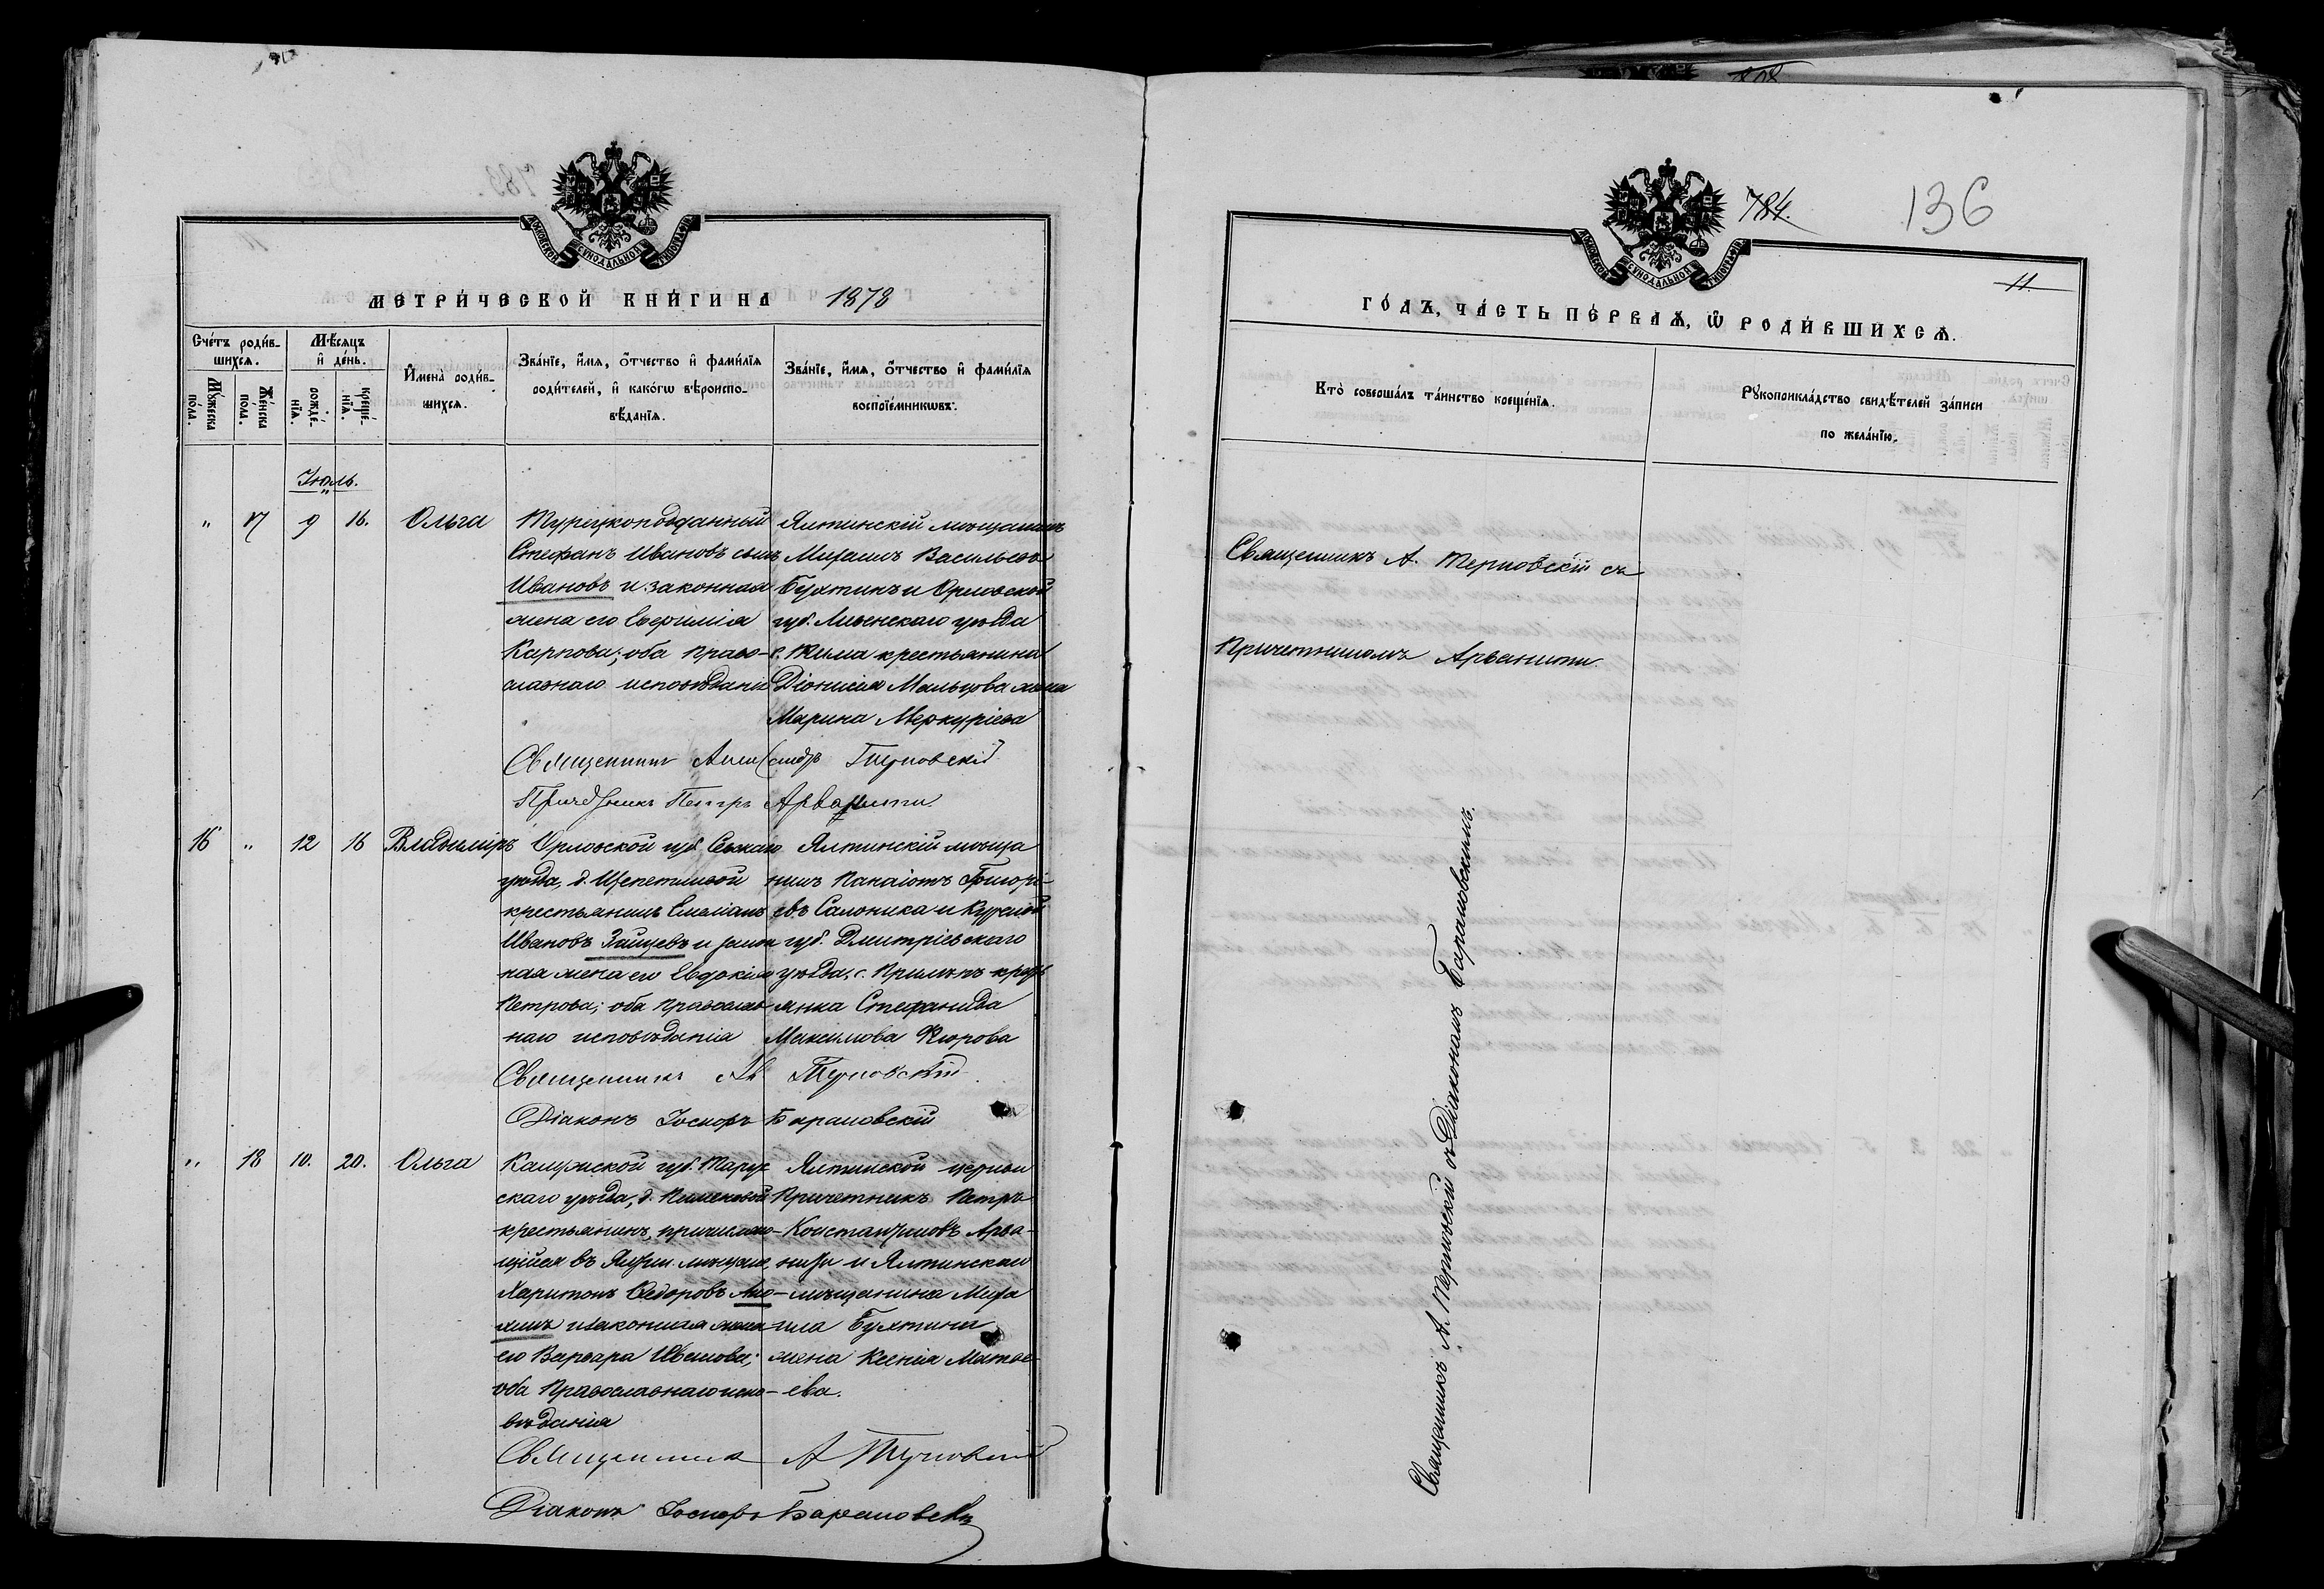 МЕТРИЧЕСКОЙ КНИГИ НА 1878
Счетъ родив-
шихся.
Мужеска
пола.
Женска
пола.
Мѣсяцъ
и день.
рожде-
нія.
креще-
нія.
Имена родив-
шихся.
Званіе, имя, отчество и фамилія
родителей, и какогѡ вѣроиспо-
вѣданія.
Званіе, имя, отчество и фамилія
воспріемникѡвъ.
Іюль.
" 17 9 16. Ольга
Турецкоподданный
Стефанъ Ивановъ сынъ
Ивановъ и законная
жена его Евфимія
Карпова; оба Право-
славнаго исповѣданія
Ялтинскій мѣщанинъ
Михаилъ Васильевъ
Бухтинъ и Орловской
губ. уѣзда
крестьянина
Діонисія Мальцова жена
Марина Меркуріева
Священникъ Александръ Терновскій
Причетникъ Петръ Арванити
16 " 12 16 Владиміръ
Орловской губ. Сѣвскаго
уѣзда, д.
крестьянинъ Емеліанъ
Ивановъ Зайцевъ и закон
ная жена его Евдокія
Петрова; оба Православ
наго исповѣданія
Ялтинскій мѣща
нинъ Панаіотъ Григорі-
евъ Салоника и Курской
губ. Дмитріевскаго
уѣзда, с. кресть
янка Стефанида
Максимова
Священникъ Ал Терновскій
Діаконъ Іосифъ Барановскій
" 18 10. 20. Ольга
Калужской губ. Тарус
скаго уѣзда, д.
крестьянинъ, причисляю-
щійся въ Ялтин. мѣщане,
Харитонъ Ѳедоровъ
и законная жена
его Варвара Иванова;
оба Православнаго испо-
вѣданія
Ялтинской церкви
Причетникъ Петръ
Константиновъ Арва-
нити и Ялтинскаго
мѣщанина Миха
ила Бухтина
жена Ксенія Матве-
ева.
Священникъ А Терновскій
Діаконъ Іосифъ Барановскій
784.
136
11.
ГОДЪ, ЧАСТЬ ПЕРВАЯ, Ѡ РОДИВШИХСЯ.
Кто совершалъ таинство крещенія.
Рукоприкладство свидѣтелей записи
по желанію.
Священникъ А. Терновскій съ
Причетникомъ Арванити.
Священникъ А. Терновскій съ Діакономъ Барановскимъ.